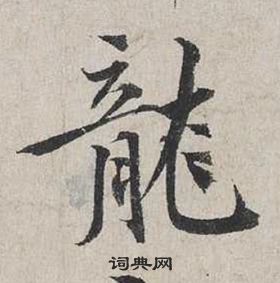 龍
词典网